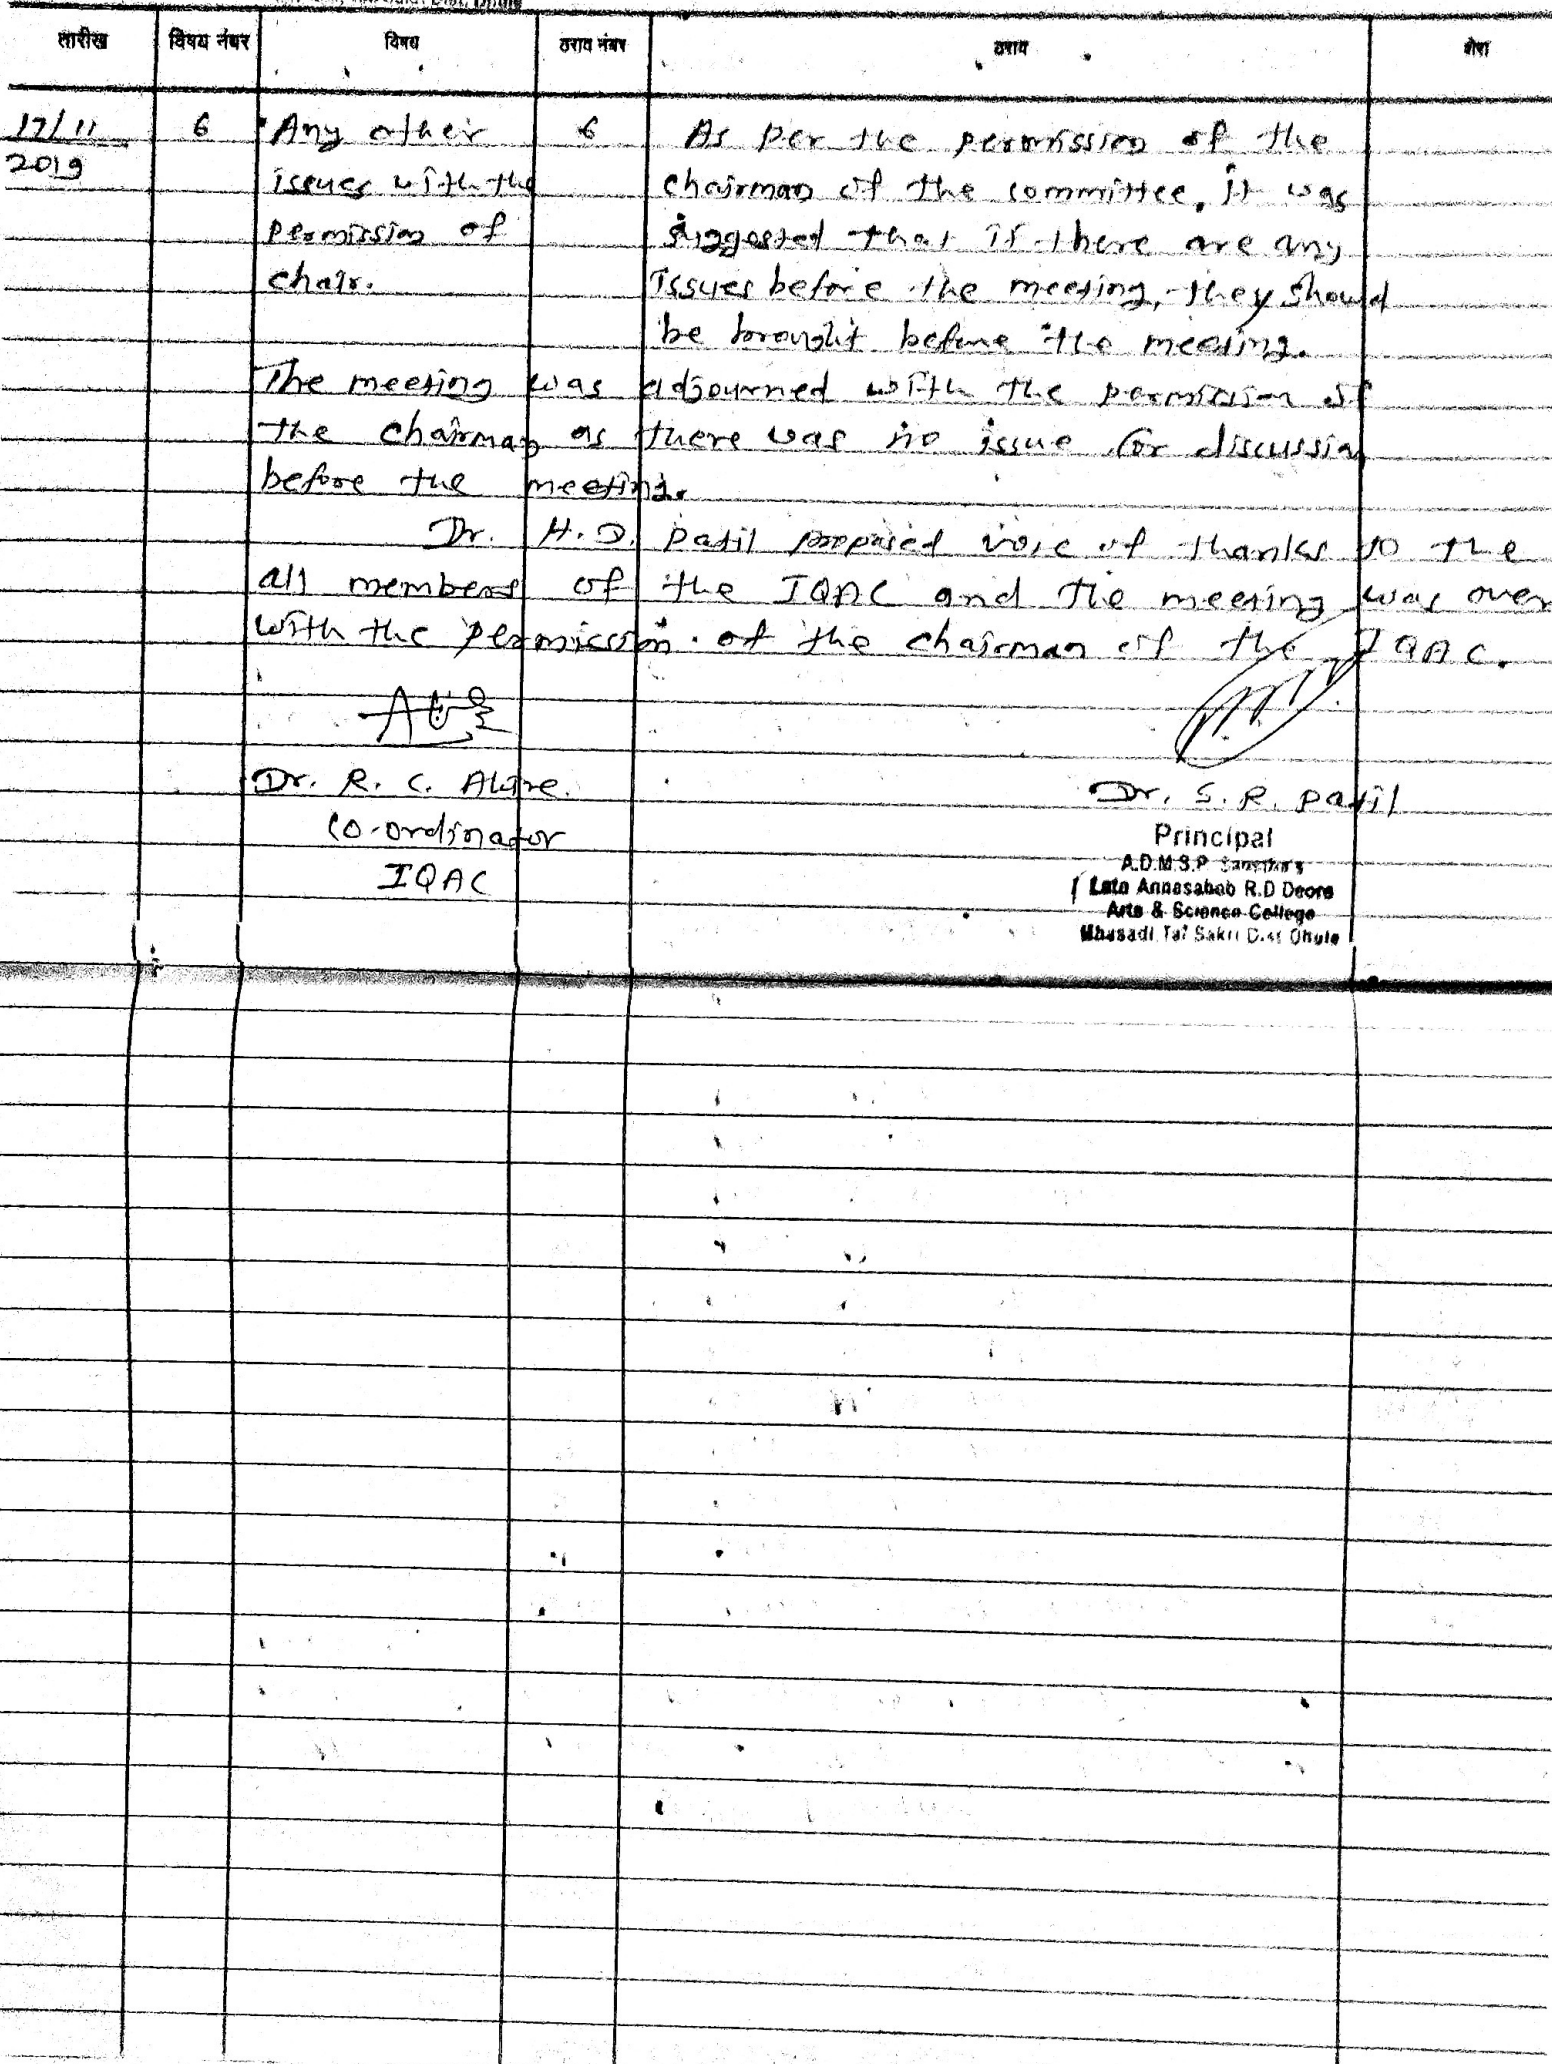 तारीख विषय नंबर विषय ठराव नंबर ठराव शेरा
17/11 6 Any other 6 As per the permission of the
2019 issues with the chairman of the committee, it was
permission of suggested that if there are any
chair. issues before the meeting, they should
be brought before the meeting.
The meeting was adjourned with the permission of
the chairman as there was no issue for discussion
before the meeting.
Dr. H.D. Patil proposed vote of thanks to the
all members of the IQAC and the meeting was over
with the permission of the chairman of the IQAC.
Dr. R. C. Dr. S. R. Patil
Co-ordinator Principal
IQAC A.D.M.S.P. Sanstha's
Late Annasaheb R.D Deore
Arts & Science College
Mhasadi Tal Sakri Dist Dhule